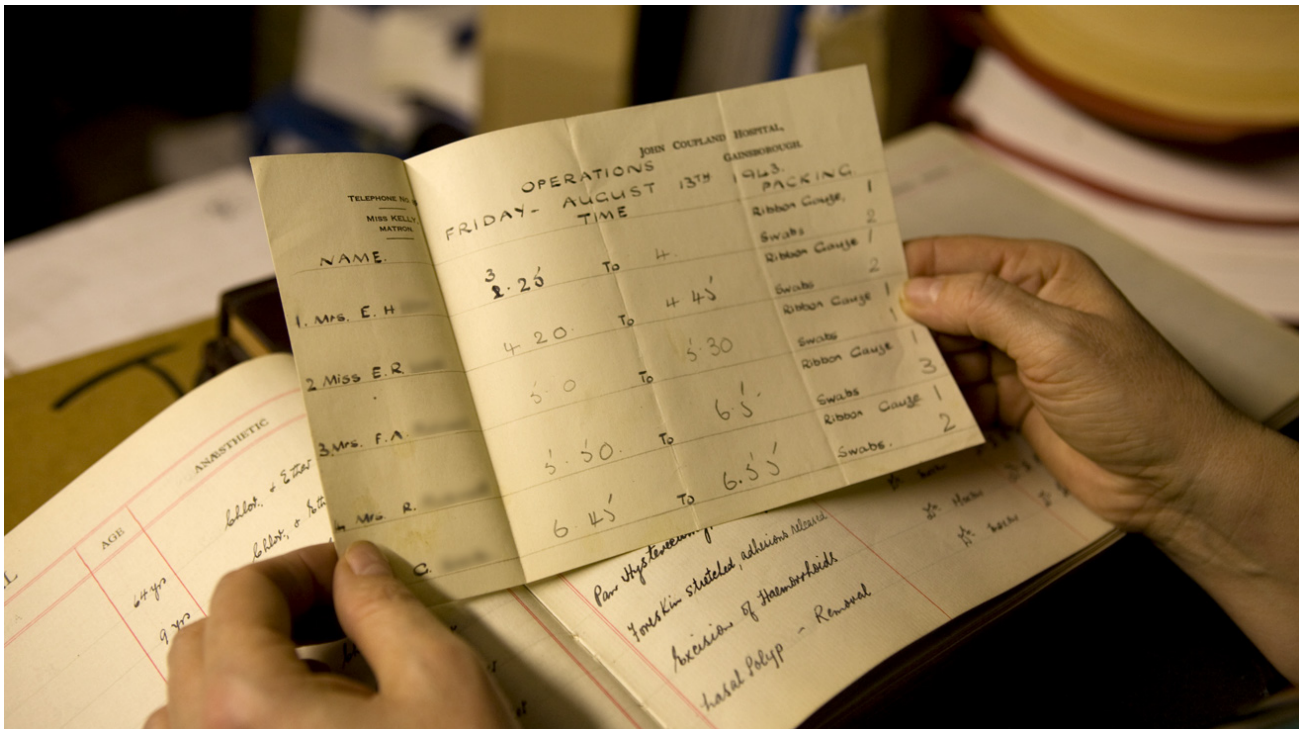 JOHN COUPLAND HOSPITAL,
GAINSBOROUGH.
TELEPHONE NO
MISS KELLY,
MATRON.
OPERATIONS
FRIDAY - AUGUST 13TH 1943.
NAME. TIME PACKING.
Ribbon Gauze, 1
Swabs 2
1. Mrs. E. H 3.25 To 4.
Ribbon Gauze 1
Swabs 2
2 Miss E.R 4 20. To 4 45
Ribbon Gauze 1
Swabs 1
3. Mrs. F.A. 5. 0 To 5.30
Ribbon Gauze 1
Swabs 3
Mrs. R. 5. 50. To 6.5.
Ribbon Gauze 1
Swabs. 2
C. 6. 45 To 6.55
AGE
ANÆSTHETIC
64 yrs
Chlor, & Ether
9 yrs
Chlor, &
Pan
Foreskin stretched, adhesions released
Excision of Haemorrhoids
nasal Polyp - Removal